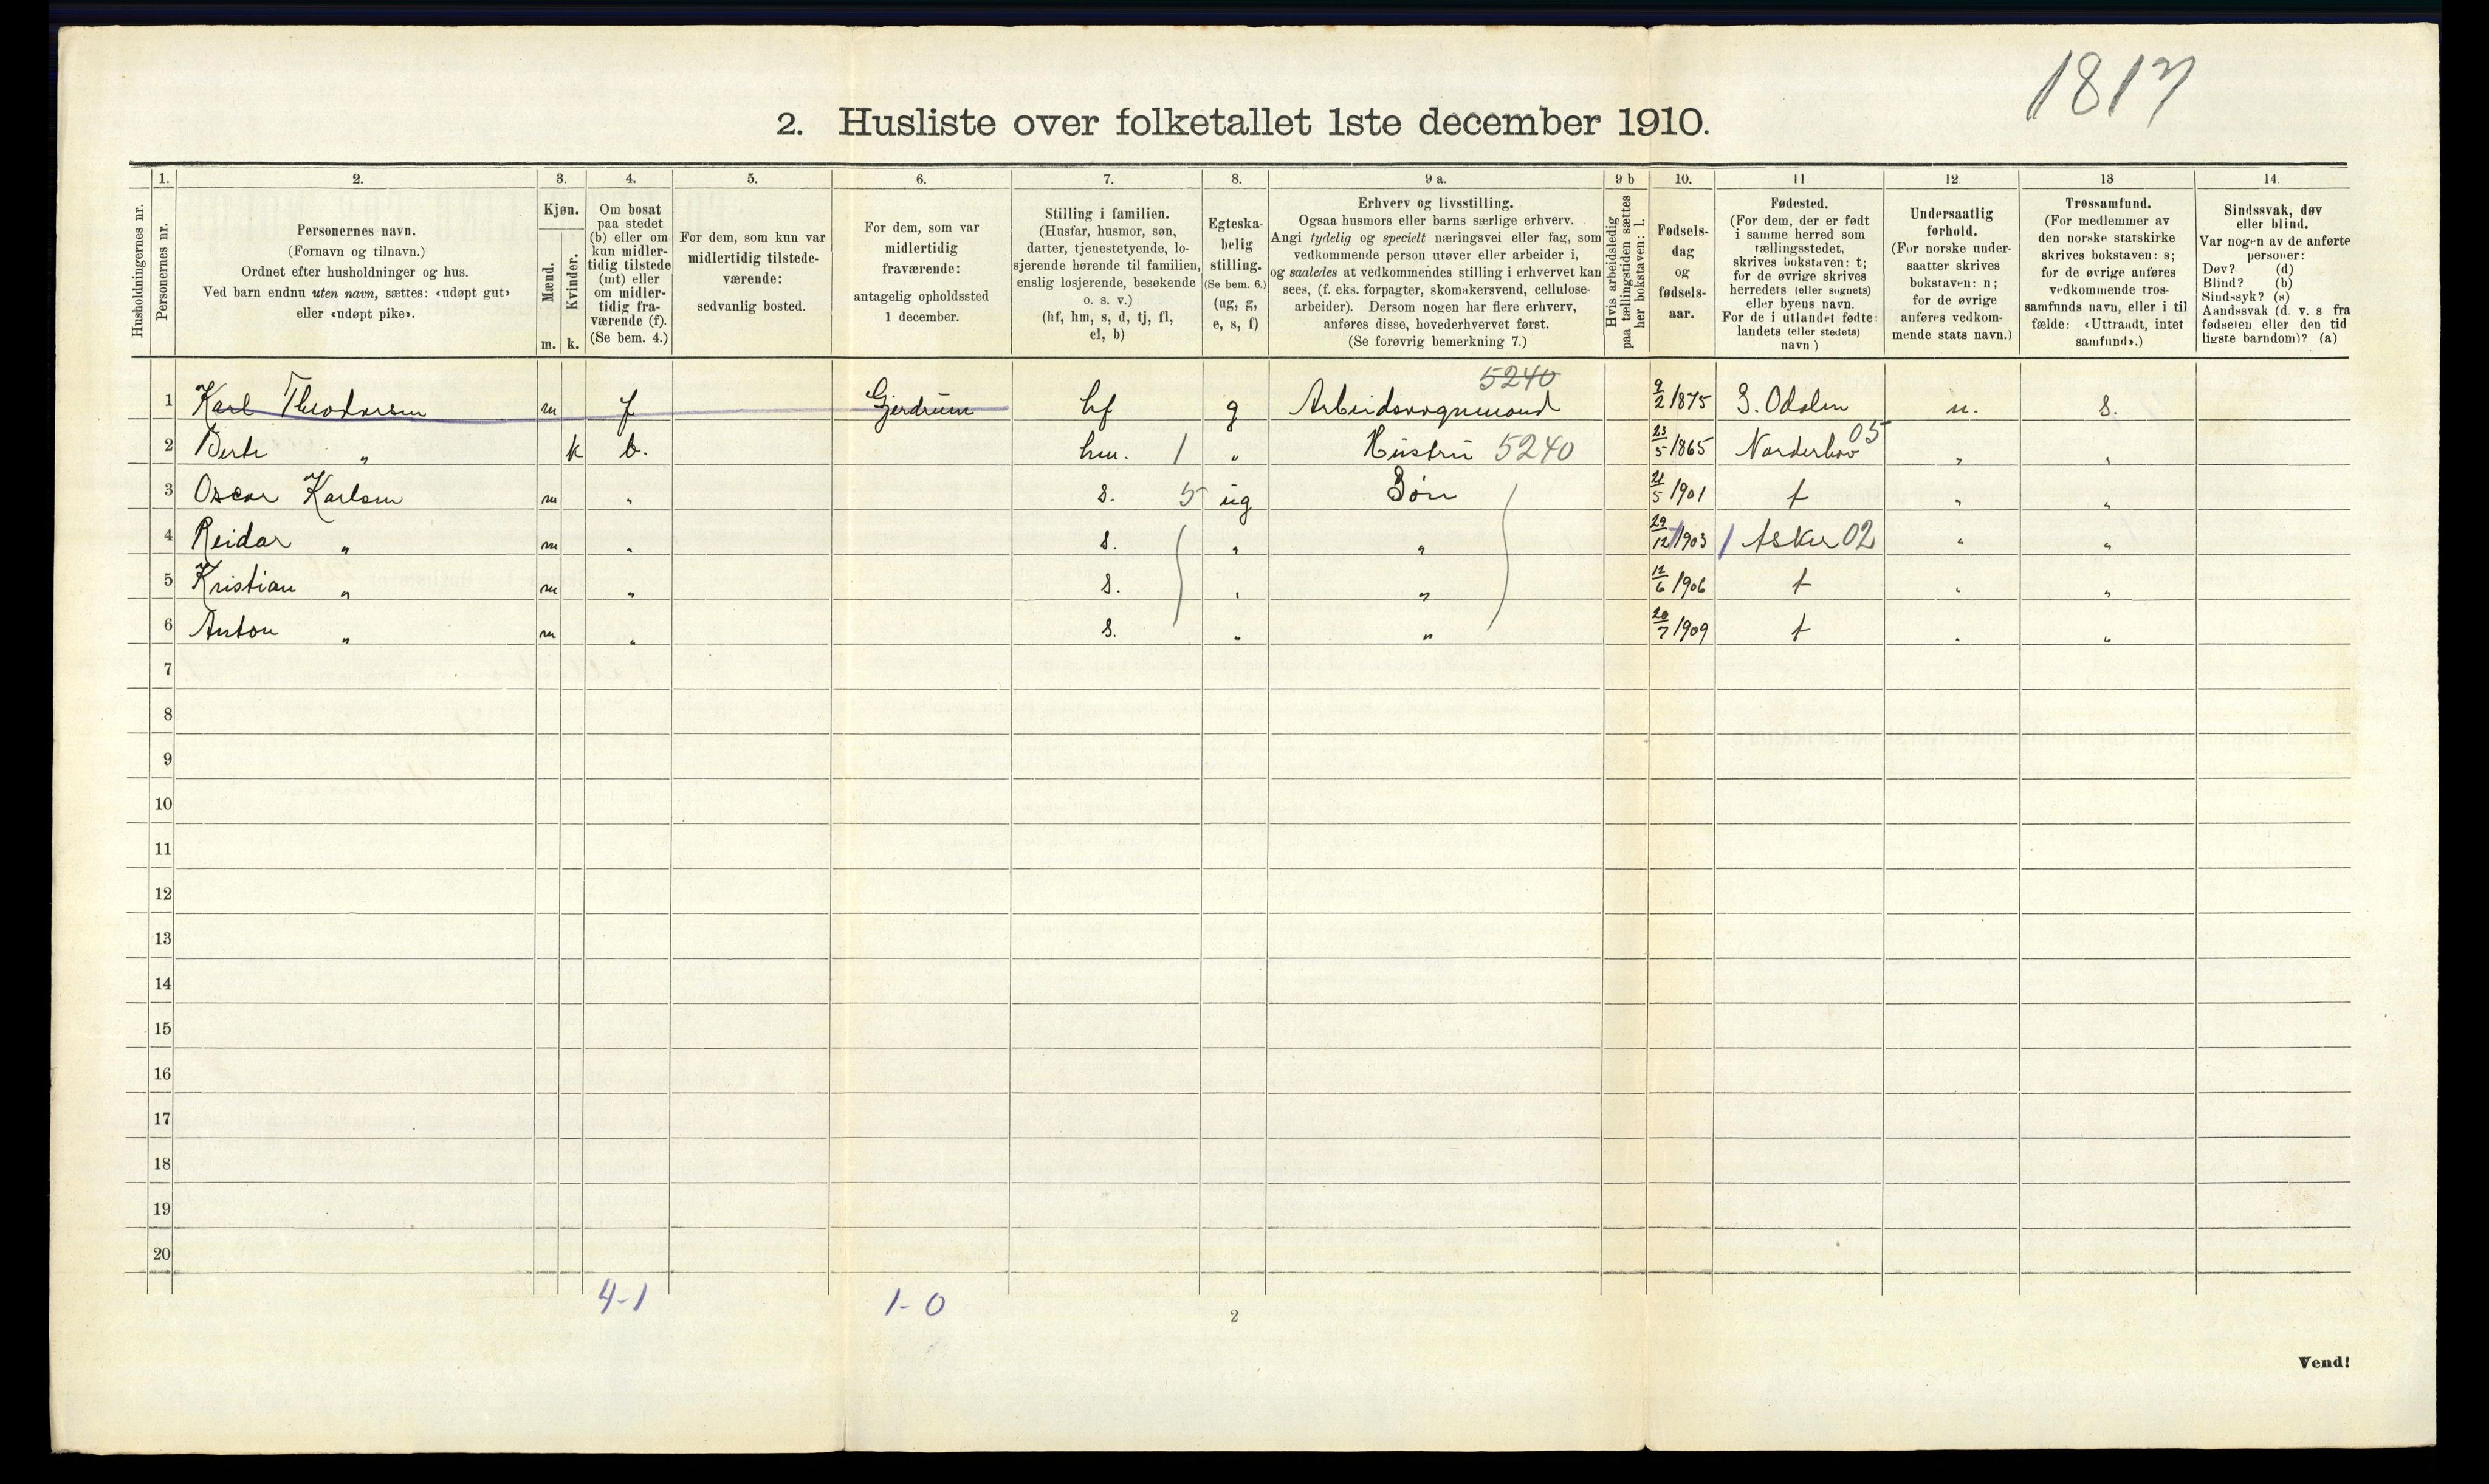 1817
2. Husliste over folketallet 1ste december 1910.
Husholdningernes nr.
1. Personernes nr.
2. Personernes navn.
(Fornavn og tilnavn.)
Ordnet efter husholdninger og hus.
Ved barn endnu uten navn, sættes: «udøpt gut»
eller «udøpt pike».
3. Kjøn.
Mænd. m.
Kvinder. k.
4. Om bosat
paa stedet
(b) eller om
kun midler-
tidig tilstede
(mt) eller
om midler-
tidig fra-
værende (f).
(Se bem. 4.)
5. For dem, som kun var
midlertidig tilstede-
værende:
sedvanlig bosted.
6. For dem, som var
midlertidig
fraværende:
antagelig opholdssted
1 december.
7. Stilling i familien.
(Husfar, husmor, søn,
datter, tjenestetyende, lo-
sjerende hørende til familien,
enslig losjerende, besøkende
o. s. v.)
(hf, hm, s, d, tj, fl,
el, b)
8. Egteska-
belig
stilling.
(Se bem. 6.)
(ug, g,
e, s, f)
9 a. Erhverv og livsstilling.
Ogsaa husmors eller barns særlige erhverv.
Angi tydelig og specielt næringsvei eller fag, som
vedkommende person utøver eller arbeider i,
og saaledes at vedkommendes stilling i erhvervet kan
sees, (f. eks. forpagter, skomakersvend, cellulose-
arbeider). Dersom nogen har flere erhverv,
anføres disse, hovederhvervet først.
(Se forøvrig bemerkning 7.)
9 b Hvis arbeidsledig
paa tællingstiden sættes
her bokstaven: l.
10. Fødsels-
dag
og
fødsels-
aar.
11 Fødested.
(For dem, der er født
i samme herred som
tællingsstedet,
skrives bokstaven: t;
for de øvrige skrives
herredets (eller sognets)
eller byens navn.
For de i utlandet fødte:
landets (eller stedets)
navn)
12 Undersaatlig
forhold.
(For norske under-
saatter skrives
bokstaven: n;
for de øvrige
anføres vedkom-
mende stats navn.)
13 Trossamfund.
(For medlemmer av
den norske statskirke
skrives bokstaven: s;
for de øvrige anføres
vedkommende tros-
samfunds navn, eller i til
fælde: «Uttraadt, intet
samfund».)
14. Sindssvak, døv
eller blind.
Var nogen av de anførte
personer:
Døv? (d)
Blind? (b)
Sindssyk? (s)
Aandssvak (d. v. s fra
fødselen eller den tid
ligste barndom)? (a)
5240
1 Karl Theodorsen m f Gjerdrum hf g Arbeidsvognmand 9/2 1875 S. Odalen n. s.
2 Berte " k b. hm. 1 " Hustru 5240 23/5 1865 Norderhov 05 " "
3 Oscar Karlsen m " s. 5 ug Søn 21/5 1901 t " "
4 Reidar " m " s. " " 29/12 1903 Asker 02 " "
5 Kristian " m " s. " " 12/6 1906 t " "
6 Anton " m " s. " " 20/7 1909 t " "
7
8
9
10
11
12
13
14
15
16
17
18
19
20
4-1 1-0
2
Vend!